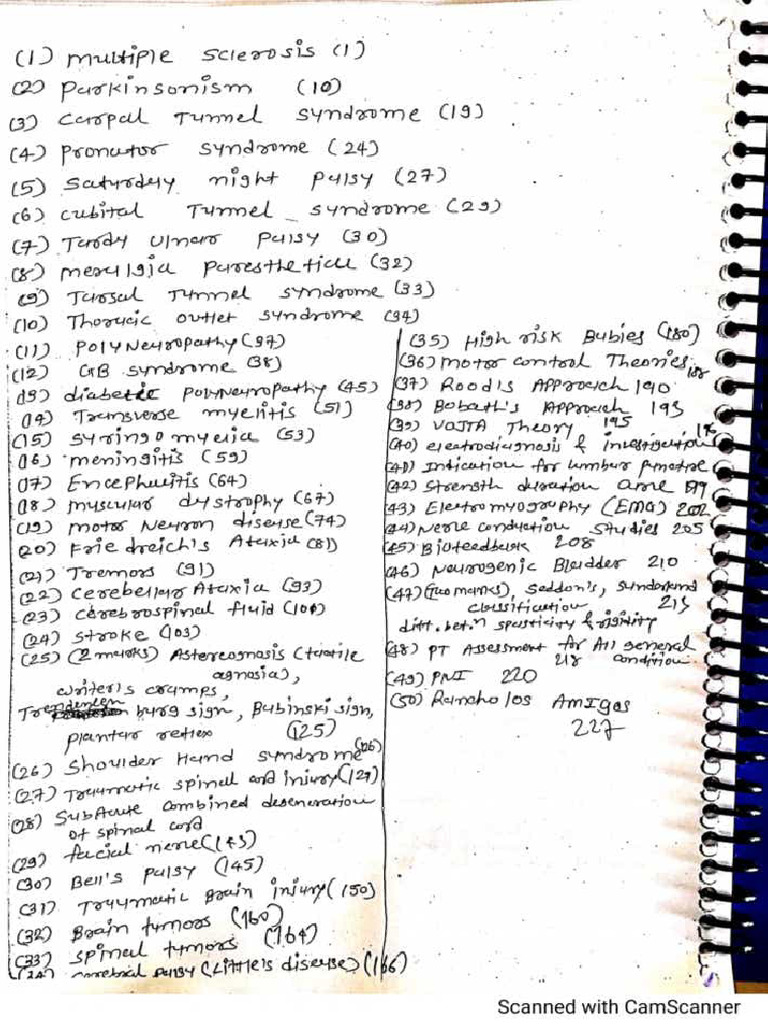 (1) multiple sclerosis (1)
(2) Parkinsonism (10)
(3) Carpal Tunnel syndrome (19)
(4) Pronator syndrome (24)
(5) Saturday night palsy (27)
(6) cubital Tunnel syndrome (29)
(7) Tardy ulnar palsy (30)
(8) meralgia paresthetica (32)
(9) Tarsal Tunnel syndrome (33)
(10) Thoracic outlet syndrome (34)
(11) PolyNeuropathy (37)
(12) GB syndrome (38)
(13) diabetic PolyNeuropathy (45)
(14) Transverse myelitis (51)
(15) syringomyelia (53)
(16) meningitis (59)
(17) Encephalitis (64)
(18) muscular dystrophy (67)
(19) motor Neuron disease (74)
(20) Friedreich's Ataxia (81)
(21) Tremors (91)
(22) cerebellar Ataxia (93)
(23) cerebrospinal fluid (101)
(24) stroke (103)
(25) (2 marks) Astereognosis (tactile
agnosia),
writer's cramps,
Trendelenburg sign, Babinski sign,
plantar reflex (125)
(26) Shoulder Hand syndrome
(27) Traumatic spinal cord injury (127)
(28) SubAcute combined degeneration
of spinal cord
(29) facial nerve (143)
(30) Bell's palsy (145)
(31) Traumatic Brain injury (150)
(32) Brain tumors (160)
(33) spinal tumors (164)
(34) cerebral palsy (Little's disease) (166)
(35) High risk Babies (180)
(36) motor control Theories
(37) Rood's Approach 190
(38) Bobath's Approach 193
(39) VOJTA Theory 195
(40) electrodiagnosis & investigations
(41) Indication for lumbar puncture
(42) Strength duration curve 199
(43) Electromyography (EMG) 202
(44) Nerve conduction studies 205
(45) Biofeedback 208
(46) Neurogenic Bladder 210
(47) (Two marks), Seddon's, Sunderland
classification 213
diff. bet.n spasticity & rigidity
(48) PT Assessment for All general
218 condition
(49) PNI 220
(50) Rancho los Amigos
227
Scanned with CamScanner